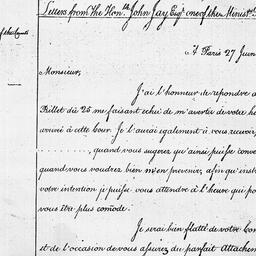 Letters from The Hon.ble John Jay Esq.r one of the Minist.
A Paris 27 Juin
Monsieur,
J'ai l'honneur de repondre a
Billet du 25 me faisant
arrivé à cette Cour. Je l'aurai également à vous recevoir
........, quand vous sugerez qu'ainsi puisse conve
quand vous voudrez bien m'en prevenir, afin qu'inst
votre intention je puisse vous attendre à l'heure qui po
vous être plus comode.
Je serai bien flatté de votre Con
et de l'occasion de vous assurer du parfait Attachem